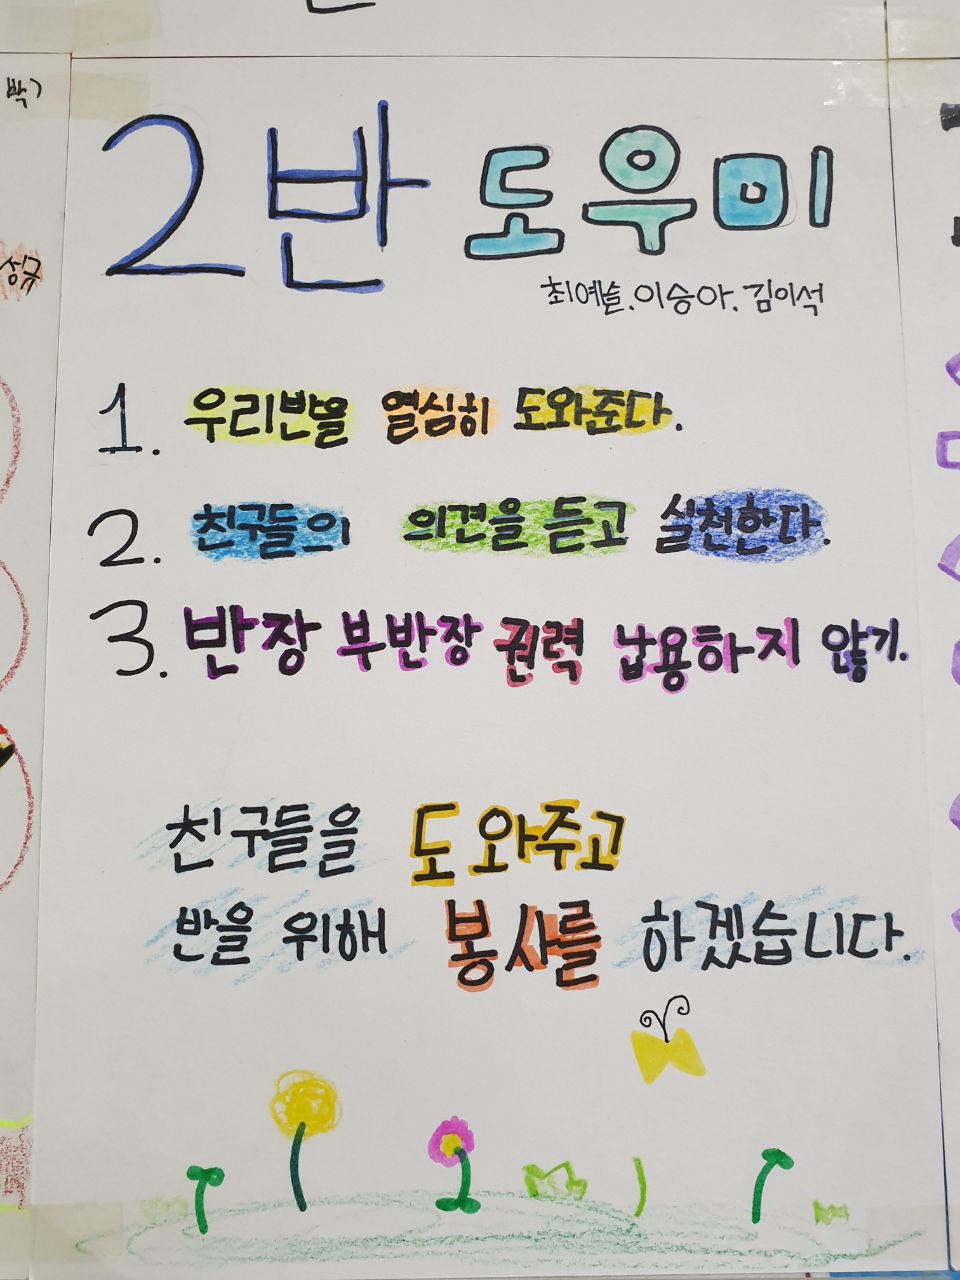 2반 도우미
최예슬. 이승아. 김이석
1. 우리반을 열심히 도와준다.
2. 친구들의 의견을 듣고 실천한다.
3. 반장 부반장 권력 납용하지 않기.
친구들을 도와주고
반을 위해 봉사를 하겠습니다.